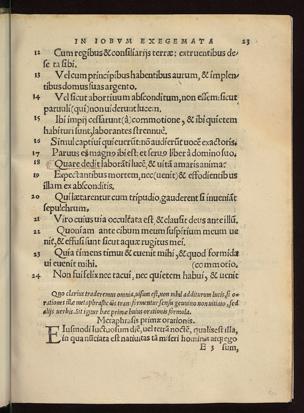 IN IOBVM EXEGEMATA 23
12 Cum regibus & consiliarijs terræ: extruentibus de-
se ta sibi.
13 Vel cum principibus habentibus aurum, & implen-
tibus domus suas argento.
14 Vel sicut abortiuum absconditum, non essem: sicut
paruuli (qui) non uiderunt lucem.
15 Ibi impij cessarunt (à) commotione, & ibi quietem
habituri sunt, laborantes strennuè.
16 Simul captiui quieuerunt: nō audierūt uocē exactoris.
17 Paruus & magnus ibi est: et seruus liber à domino suo.
18 Quare dedit laborāti lucē, & uitā amaris animæ?
19 Expectantibus mortem, nec (uenit) & effodientibus
illam ex absconditis.
20 Qui lætarentur cum tripudio, gauderent si inuenissent
sepulchrum.
21 Viro cuius uia occultata est, & clausit deus ante illū.
22 Quoniam ante cibum meum suspirium meum ue
nit, & effusi sunt sicut aquæ rugitus mei.
23 Quia timens timui & euenit mihi, & quod formida
ui euenit mihi. (commotio.
24 Non fui felix nec tacui, nec quietem habui, & uenit
Quo clarius traderemus omnia, uisum est, non nihil additurum lucis, si o-
rationes istæ metaphrasticῶs transformentur sensu genuino non uitiato, sed
alijs uerbis. Sit igitur hæc primæ huius orationis formula.
Metaphrasis primæ orationis.
Eiusmodi luctuosum diē, uel tetrā noctē, qualis est illa,
in qua nūciata est natiuitas tā miseri hominis atq; ego
E 3 sum,